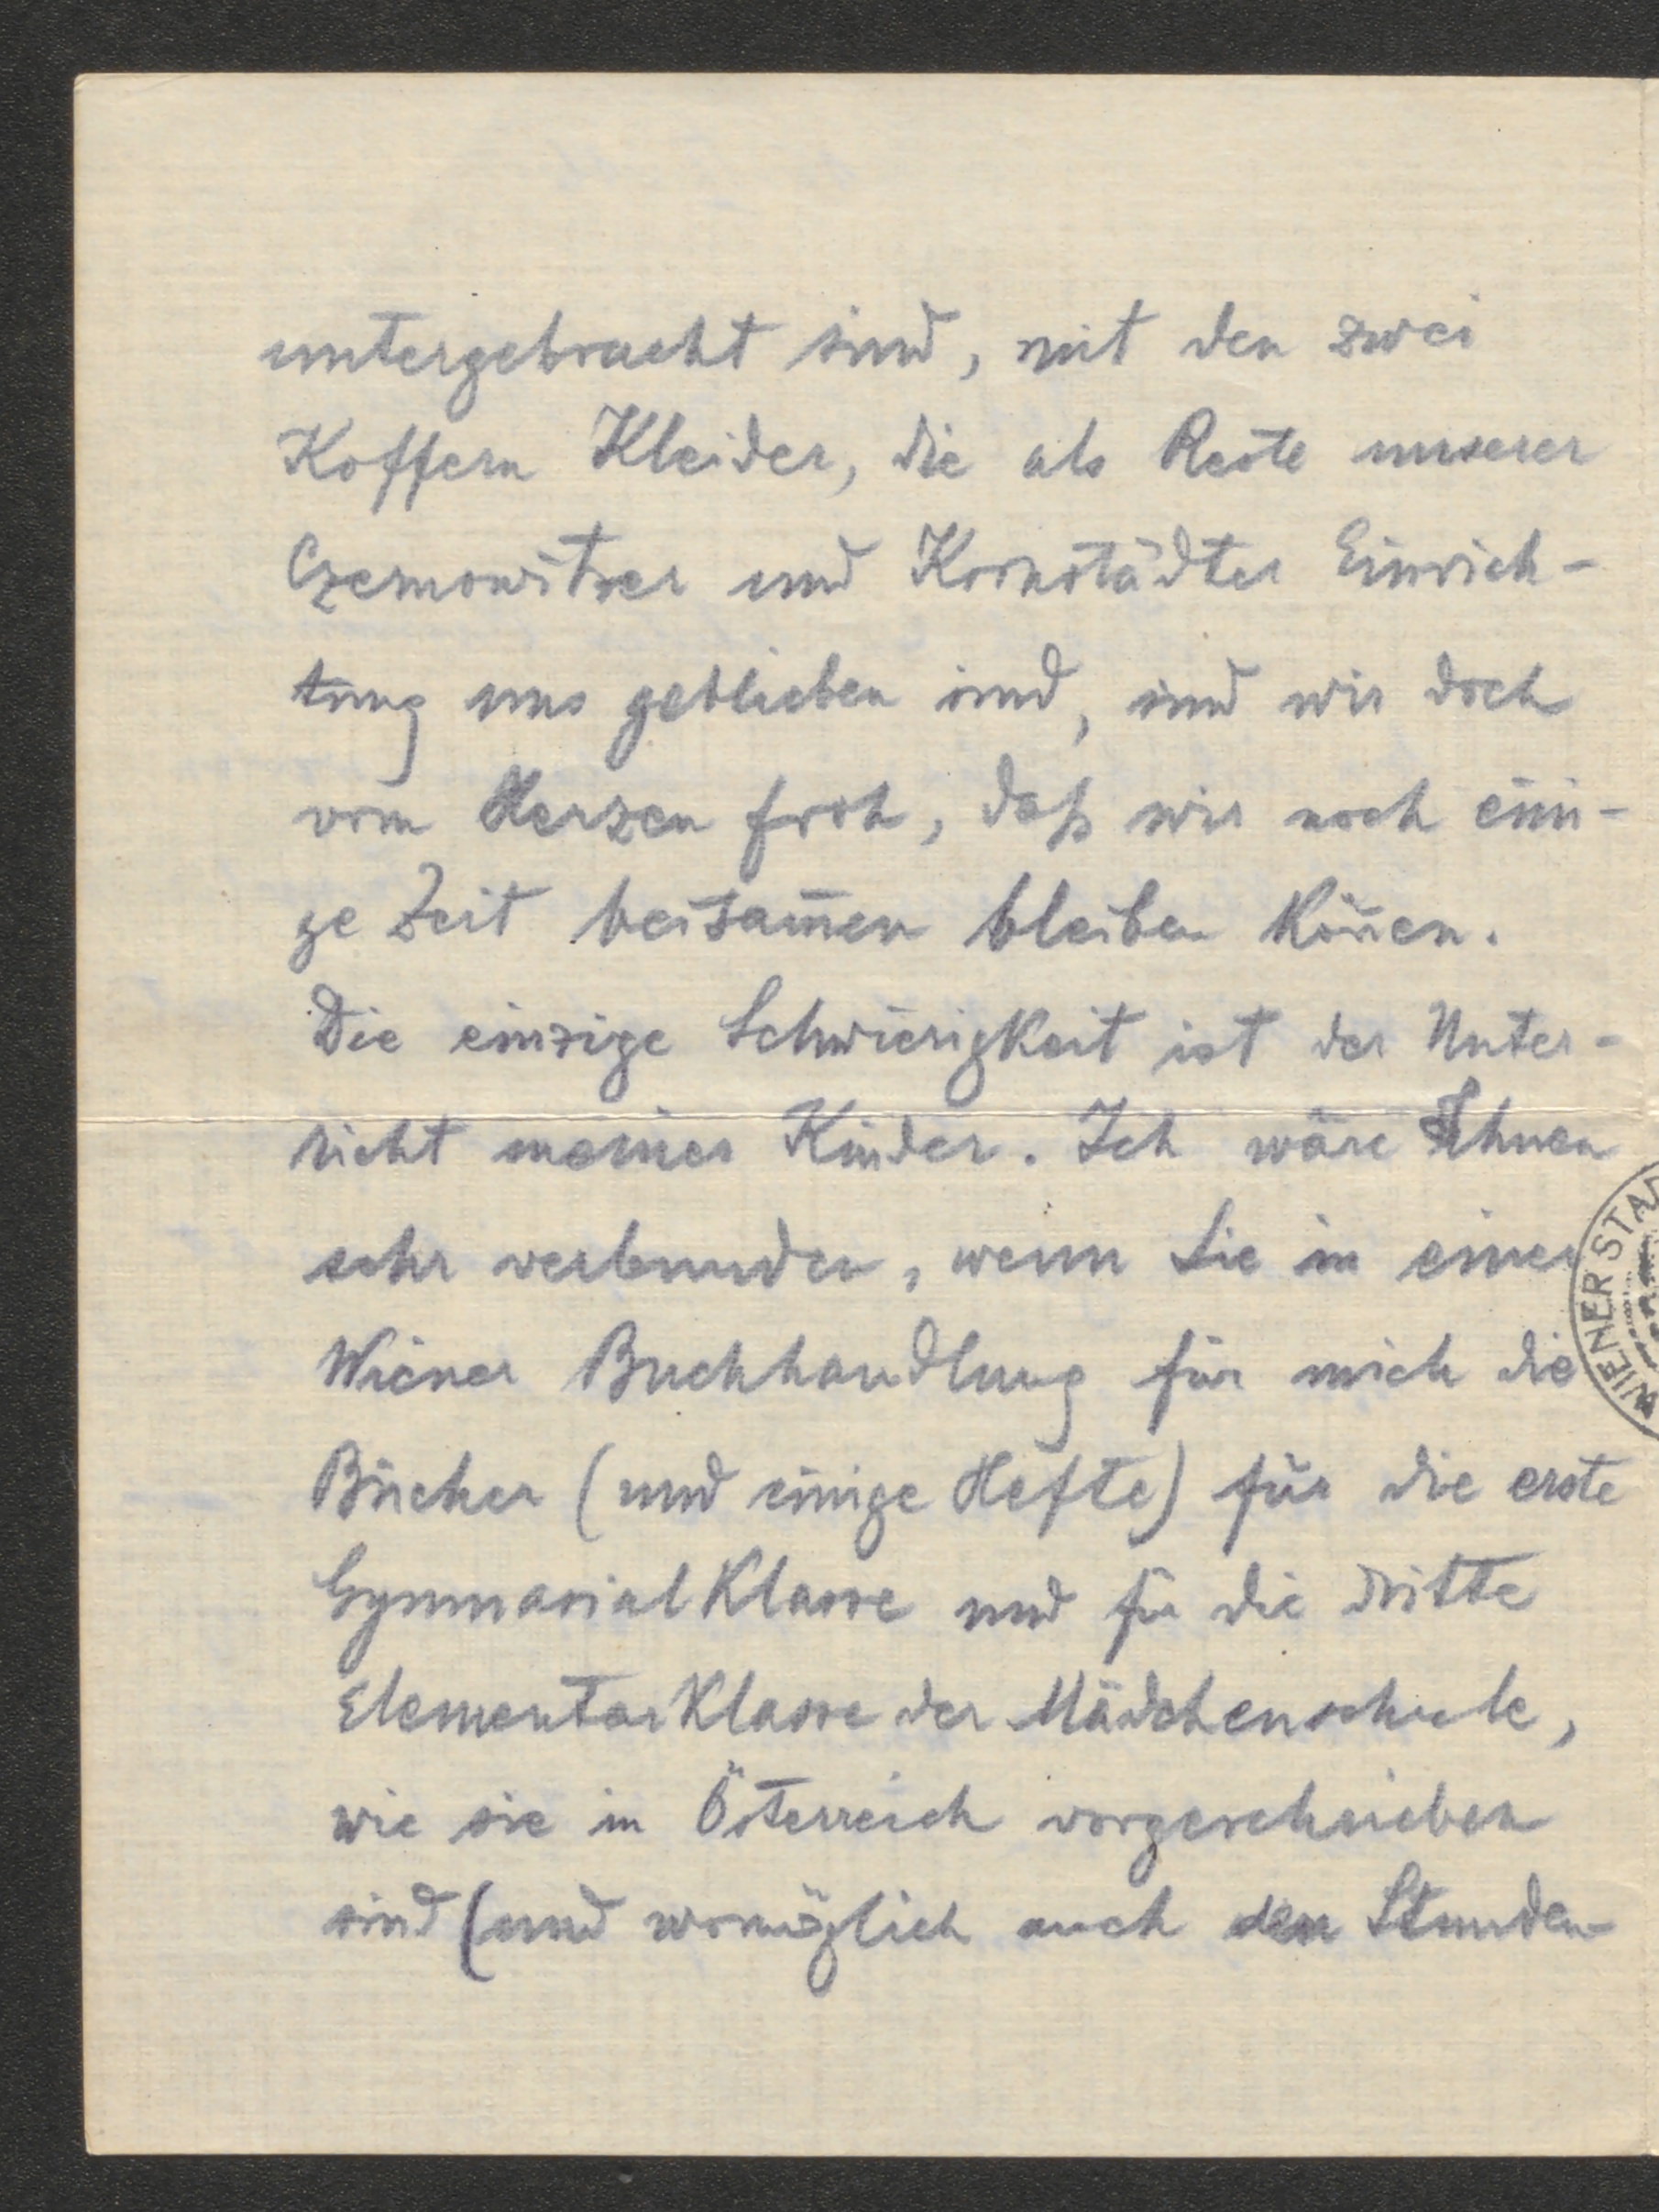 untergebracht sind, mit den zwei
Koffern Kleider, die als Reste unserer
Czernowitzer und Kronstädter Einrich-
tung uns geblieben sind, sind wir doch
vom Herzen froh, daß wir noch eini-
ge Zeit beisam̄en bleiben kön̄en.
Die einzige Schwierigkeit ist der Unter-
richt meiner Kinder. Ich wäre Ihnen
sehr verbunden, wenn Sie in einer
Wiener Buchhandlung für mich die
Bücher (und einige Hefte) für die erste
Gymnasialklasse und für die dritte
Elementarklasse der Mädchenschule,
wie sie in Österreich vorgeschrieben
sind (und womöglich auch den Stunden-
WIENER STAD